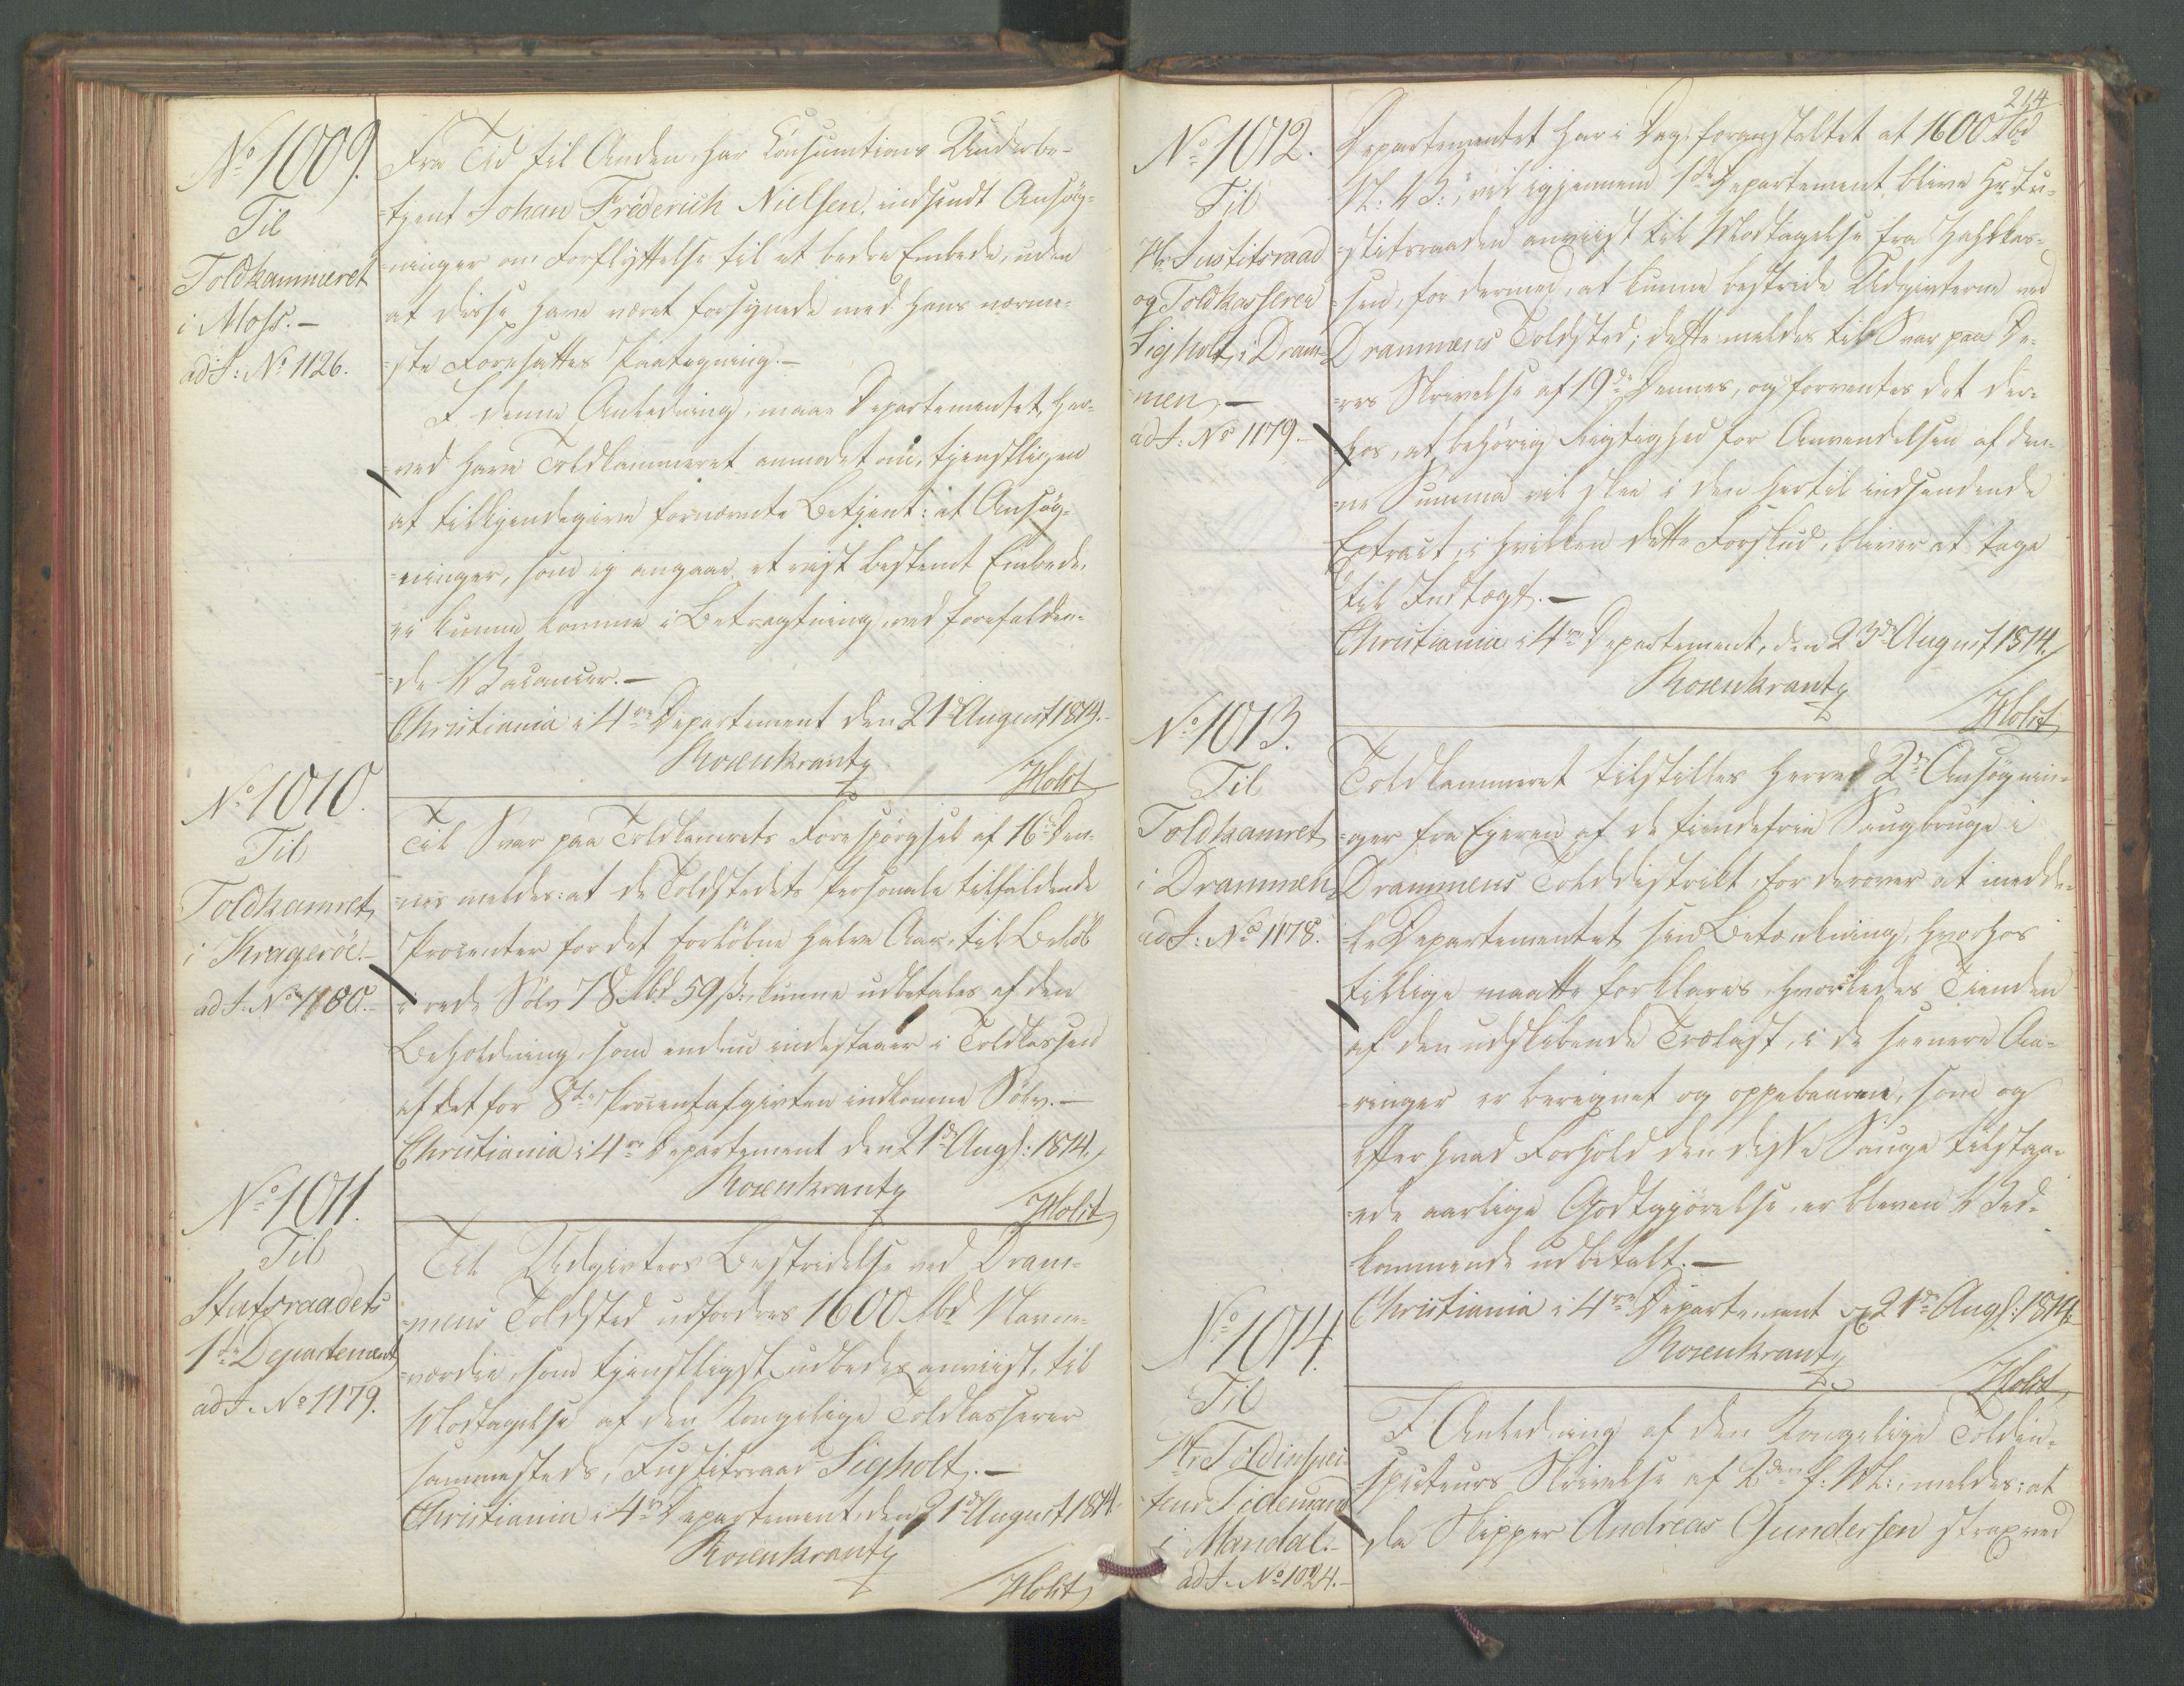 No 1009.
Til
Toldkammeret
i Moss.-
ad J: No 1126.
Fra Tid til Anden, har Consumtions Underbe-
-tjent Johan Friderich Nielsen, indsendt Ansøg-
-ninger om Forflyttelse til et bedre Embede, uden
at disse have været forsynede med hans nærme-
-ste Foresattes Paategning.-
I denne Anledning, maae Departementet, her-
-ved have Toldkammeret anmodet om, tjenstligen
at tilkjendegive fornævnte Betjent: at Ansøg-
-ninger, som ej angaae et vist bestemt Embede,
ei kunne komme i Betragtning, ved forefalden-
-de Vacancer.-
Christiania i 4de Departement den 21de August 1814.-
Rosenkrantz
Holst
No 1010.
Til
Toldkamret
i Kragerøe.-
ad J: No 1180.-
Til Svar paa Toldkamrets Forespørgsel af 16de Den-
-nes meldes: at de Toldstedets Personale tilfaldende
Procenter for det forløbne halve Aar, til Beløb
i rede Sølv 78 Rbd 59 s:, kunne udbetales af den
Beholdning, som endnu indestaaer i Toldkassen
af det for 8de Procentafgivten indkomne Sølv.-
Christiania i 4de Departement den 21de Augs: 1814.
Rosenkrantz
Holst
No 1011.
Til
Statsraadets
1ste Departement
ad J. No 1179.
Til Udgivters Bestridelse ved Dram-
-mens Toldsted udfordres 1600 Rbd Navne-
-værdie, som tjenstligst udbedes anviist, til
Modtagelse af den Kongelige Toldkasserer
sammesteds, Justitsraad Sigholt.-
Christiania i 4de Departement den 21de August 1814.
Rosenkrantz
Holst
214
No 1012.
Til
Hr Justitsraad
og Toldkasserer
Sigholt, i Dram-
-men.-
ad J: No 1179.-
Departementet har i Dag foranstaltet at 1600 Rbd
N: V:, vil igjennem 1ste Departement blive Hr Ju-
-stitsraaden anviist til Modtagelse fra
-sen, for dermed, at kunne bestride Udgivterne ved
Drammens Toldsted; dette meldes til Svar paa De-
-res Skrivelse af 19de Dennes, og forventes det der-
-hos, at behørig Rigtighed for Anvendelsen af den-
-ne Summa vil skee i den hertil indsendende
Extract, i hvilken dette Forskud, bliver at tage
til Indtægt.-
Christiania i 4de Departement, den 23de August 1814.
Rosenkrantz
Holst
No 1013.
Til
Toldkamret
i Drammen
ad J: No 1178.
Toldkammeret tilstilles herved 2de Ansøgnin-
-ger fra Ejeren af de tiendefrie Saugbruge i
Drammens Tolddistrikt, for derover at medde-
-le Departementet sin Betænkning, hvorhos
tillige maatte forklares, hvorledes Tienden
af den udskibende Trælast, i de seenere Aa-
-ringer er beregnet og oppebaaren, som og
efter hvad Forhold den disse Sauge tilstaa-
-ede aarlige Godtgjørelse, er bleven Ved-
kommende udbetalt.-
Christiania i 4de Departement d 21de Augs: 1814.
Rosenkrantz
Holst
No 1014.
Til
Hr Toldinspec-
teur Tidemand
i Mandal.-
ad J. No 1024.-
I Anledning af den Kongelige Toldin-
specteurs Skrivelse af 2den f: M:, meldes: at
da Skipper Andreas Gundersen strax ved